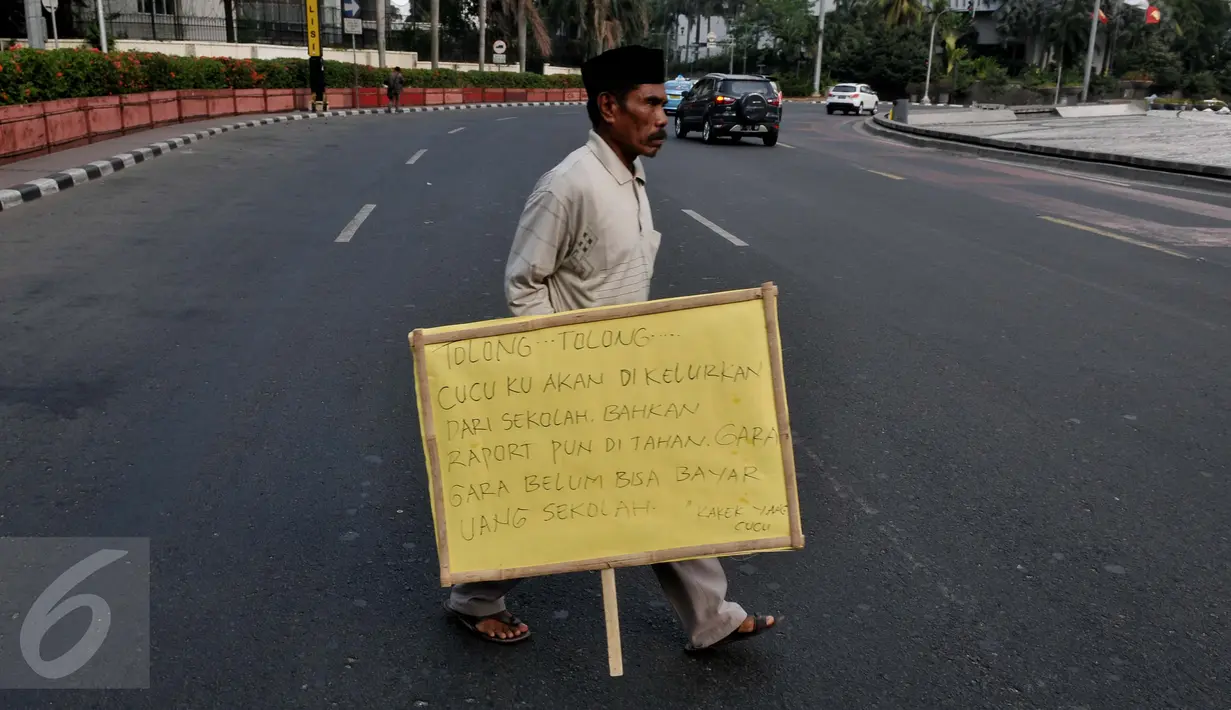 LISI
TOLONG...TOLONG.....
CUCU KU AKAN DI KELURKAN
DARI SEKOLAH. BAHKAN
RAPORT PUN DI TAHAN. GARA
GARA BELUM BISA BAYAR
UANG SEKOLAH.
"KAKEK YANG
CUCU
6